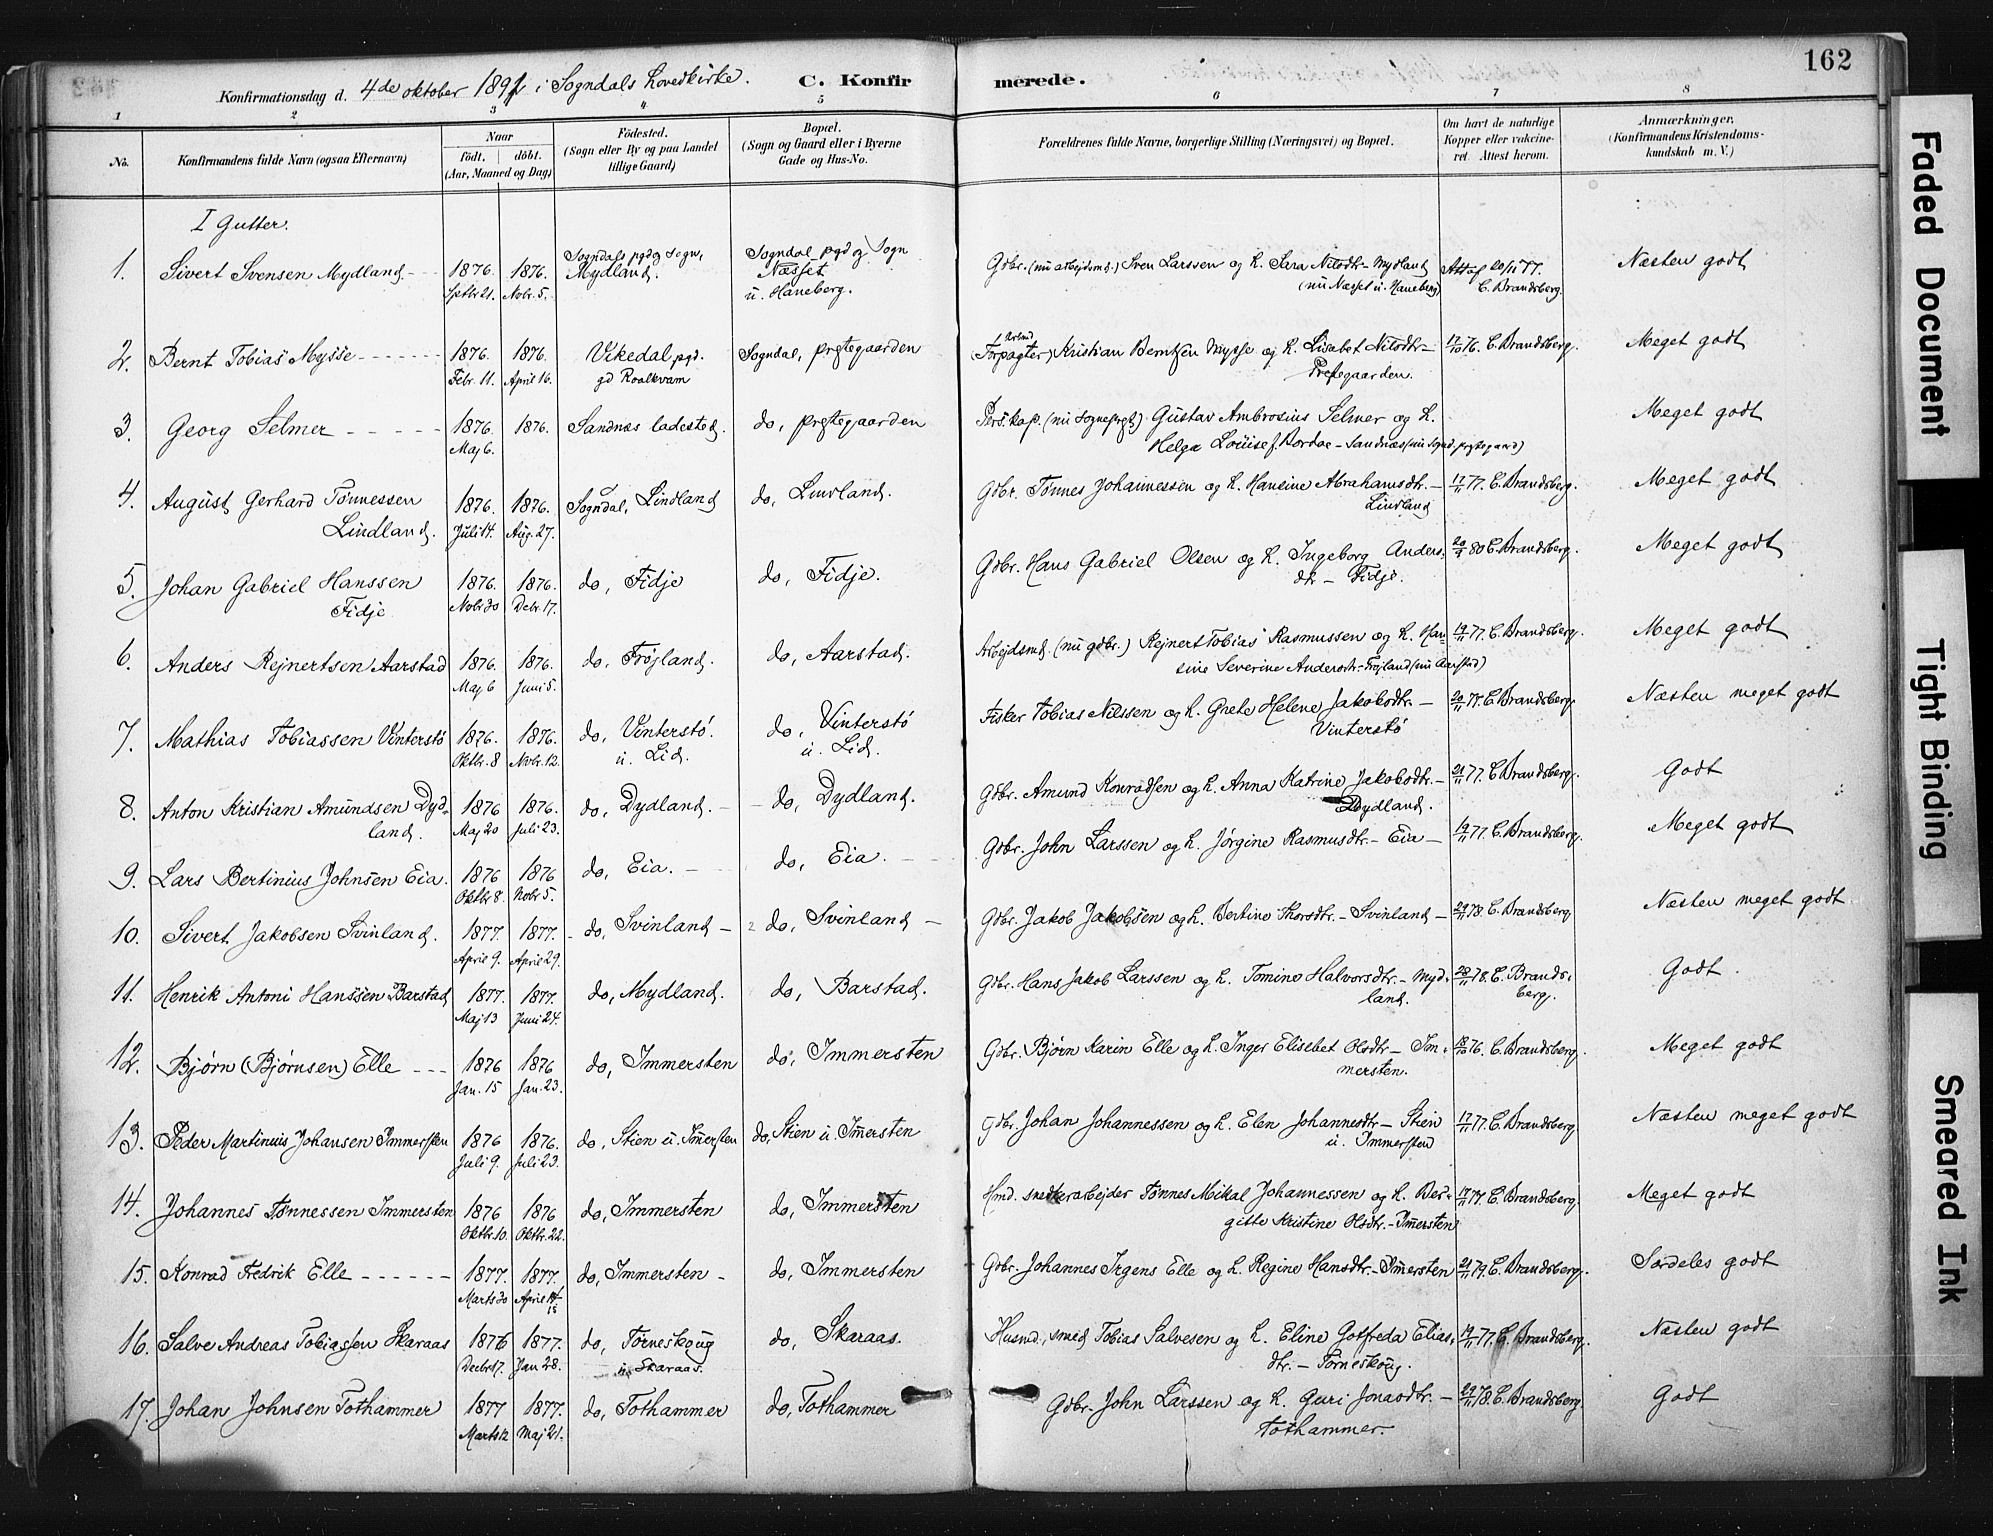 162
Konfirmationsdag d. 4de oktober 1891 i Sogndals hovedkirke. C. Konfirmerede.
1 2 3 4 5 6 7 8
No. Konfirmandens fulde Navn (ogsaa Efternavn) Naar født. døbt. (Aar, Maaned og Dag) Fødested. (Sogn eller By og paa Landet tillige Gaard) Bopæl. (Sogn og Gaard eller i Byerne Gade og Hus-No. Forældrenes fulde Navne, borgerlige Stilling (Næringsvei) og Bopæl. Om havt de naturlige Kopper eller vakcineret. Attest herom. Anmærkninger. (Konfirmandens Kristendomskundskab m. V.)
I Gutter.
1. Sivert Svensen Mydland 1876. Sptbr 21. 1876. Nobr. 5. Sogndals pgd og Sogn, Mydland. Sogndal pgd og Sogn Næsset u. Haneberg. Gdbr. (nu arbejdsmd.) Sven Larssen og h. Sara Nilsdtr - Mydland (nu Næsset u. Haneberg) 20/11 77. C. Brandsberg. Næsten godt
2. Bernt Tobias Mysse 1876. Febr. 11. 1876. April 16. Vikedal pgd. gd Roalkvam Sogndal, prestegaarden Forpagter Kristian Berntsen Mysse og h. Lisabet Nilsdtr - Prestegaarden. 17/10 76. C. Brandsberg. Meget godt
3. Georg Selmer 1876. Maj 6. 1876. Sandnæs ladested. do, prestegaarden Pers. kap. (nu sogneprest) Gustav Ambrosius Selmer og h. Helga Louise f. Bordoe - Sandnæs (nu Sognd. prestegaard) Meget godt
4. August Gerhard Tønnessen Lindland. 1876. Juli 14. 1876. Aug. 27. Sogndal, Lindland do, Lindland. Gdbr. Tønnes Johannessen og h. Hansine Abrahamsdtr. - Lindland 17/11 77. C. Brandsberg. Meget godt
5. Johan Gabriel Hanssen Fidje 1876. Nobr 30 1876. Debr. 17. do, Fidje do, Fidje. Gdbr. Hans Gabriel Olsen og h. Ingeborg Andersdtr - Fidje. 20/9 80 C. Brandsberg. Meget godt
6. Anders Rejnertsen Aarstad 1876. Maj 6 1876. Juni 5. do, Frøjland. do, Aarstad. Arbejdsmd. (nu gdbr.) Rejnert Tobias Rasmussen og h. Hansine Severine Andersdtr - Frøjland (nu Aarstad) 19/11 77. C. Brandsberg. Meget godt
7. Mathias Tobiassen Vinterstø 1876. Oktbr. 8 1876. Nobr. 12. do, Vinterstø. u. Lid. do, Vinterstø u. Lid. Fisker Tobias Nilssen og h. Grete Helene Jakobsdtr. - Vinterstø 20/11 77. C. Brandsberg. Næsten meget godt
8. Anton Kristian Amundsen Dydland. 1876 Maj 20 1876. Juli 23. do, Dydland. do, Dydland. Gdbr. Amund Konradsen og h. Anna Katrine Jakobsdtr. - Dydland. 21/11 77. C. Brandsberg. Godt
9. Lars Bertinius Johnsen Eia. 1876 Oktbr 8. 1876 Nobr 5. do, Eia. do, Eia. Gdbr. John Larssen og h. Jørgine Rasmusdtr. - Eia 19/11 77. C. Brandsberg. Meget godt
10. Sivert Jakobsen Svinland. 1877. April 9. 1877. April 29. do, Svinland do, Svinland Gdbr. Jakob Jakobsen og h. Bertine Thorsdtr. - Svinland 29/11 78. C. Brandsberg Næsten meget godt.
11. Henrik Antoni Hanssen Barstad 1877. Maj 13 1877. Juni 24. do, Mydland. do, Barstad. Gdbr. Hans Jakob Larssen og h. Tomine Halvorsdtr. - Mydland. 28/11 78. C. Brandsberg. Godt.
12. Bjørn (Bjørnsen) Elle 1876 Jan. 15 1876 Jan. 23. do, Immersten do, Immersten Gdbr. Bjørn Karin Elle og h. Inger Elisebet Olsdtr - Immersten. 18/10 76. C. Brandsberg. Meget godt
13. Peder Martinius Johansen Immersten 1876 Juli 9. 1876. Juli 23. do, Stien u. Imersten do, Stien u. Imersten Gdbr. Johan Johannessen og h. Elen Johannesdtr - Stien u. Immersten 17/11 77. C. Brandsberg. Næsten meget godt
14. Johannes Tønnessen Immersten 1876 Oktbr. 10. 1876 Oktbr. 22. do, Immersten do, Immersten Hmd. snedkerarbejder Tønnes Mikal Johannessen og h. Bergitte Kristine Olsdtr. - Imersten 17/11 77. C. Brandsberg. Meget godt
15. Konrad Fredrik Elle 1877. Marts 30 1877. April do, Immersten do, Immersten Gdbr. Johannes Irgens Elle og h. Regine Hansdtr. - Imersten 21/11 79. C. Brandsberg. Særdeles godt
16. Salve Andreas Tobiassen Skaraas 1876 Decbr 17. 1877. Jan 28. do, Torneskoug u. Skaraas. do, Skaraas. Husmd., smed Tobias Salvesen og h. Eline Goffreda Eliasdtr. - Torneskoug. 19/11 77. C. Brandsberg. Næsten godt
17. Johan Johnsen Tothammer 1877 Marts 12 1877. Maj 21. do, Tothammer do, Tothammer Gdbr. John Larssen og h. Guri Jonasdtr. - Tothammer. 29/11 78. C. Brandsberg. Godt
Faded Document
Tight Binding
Smeared Ink